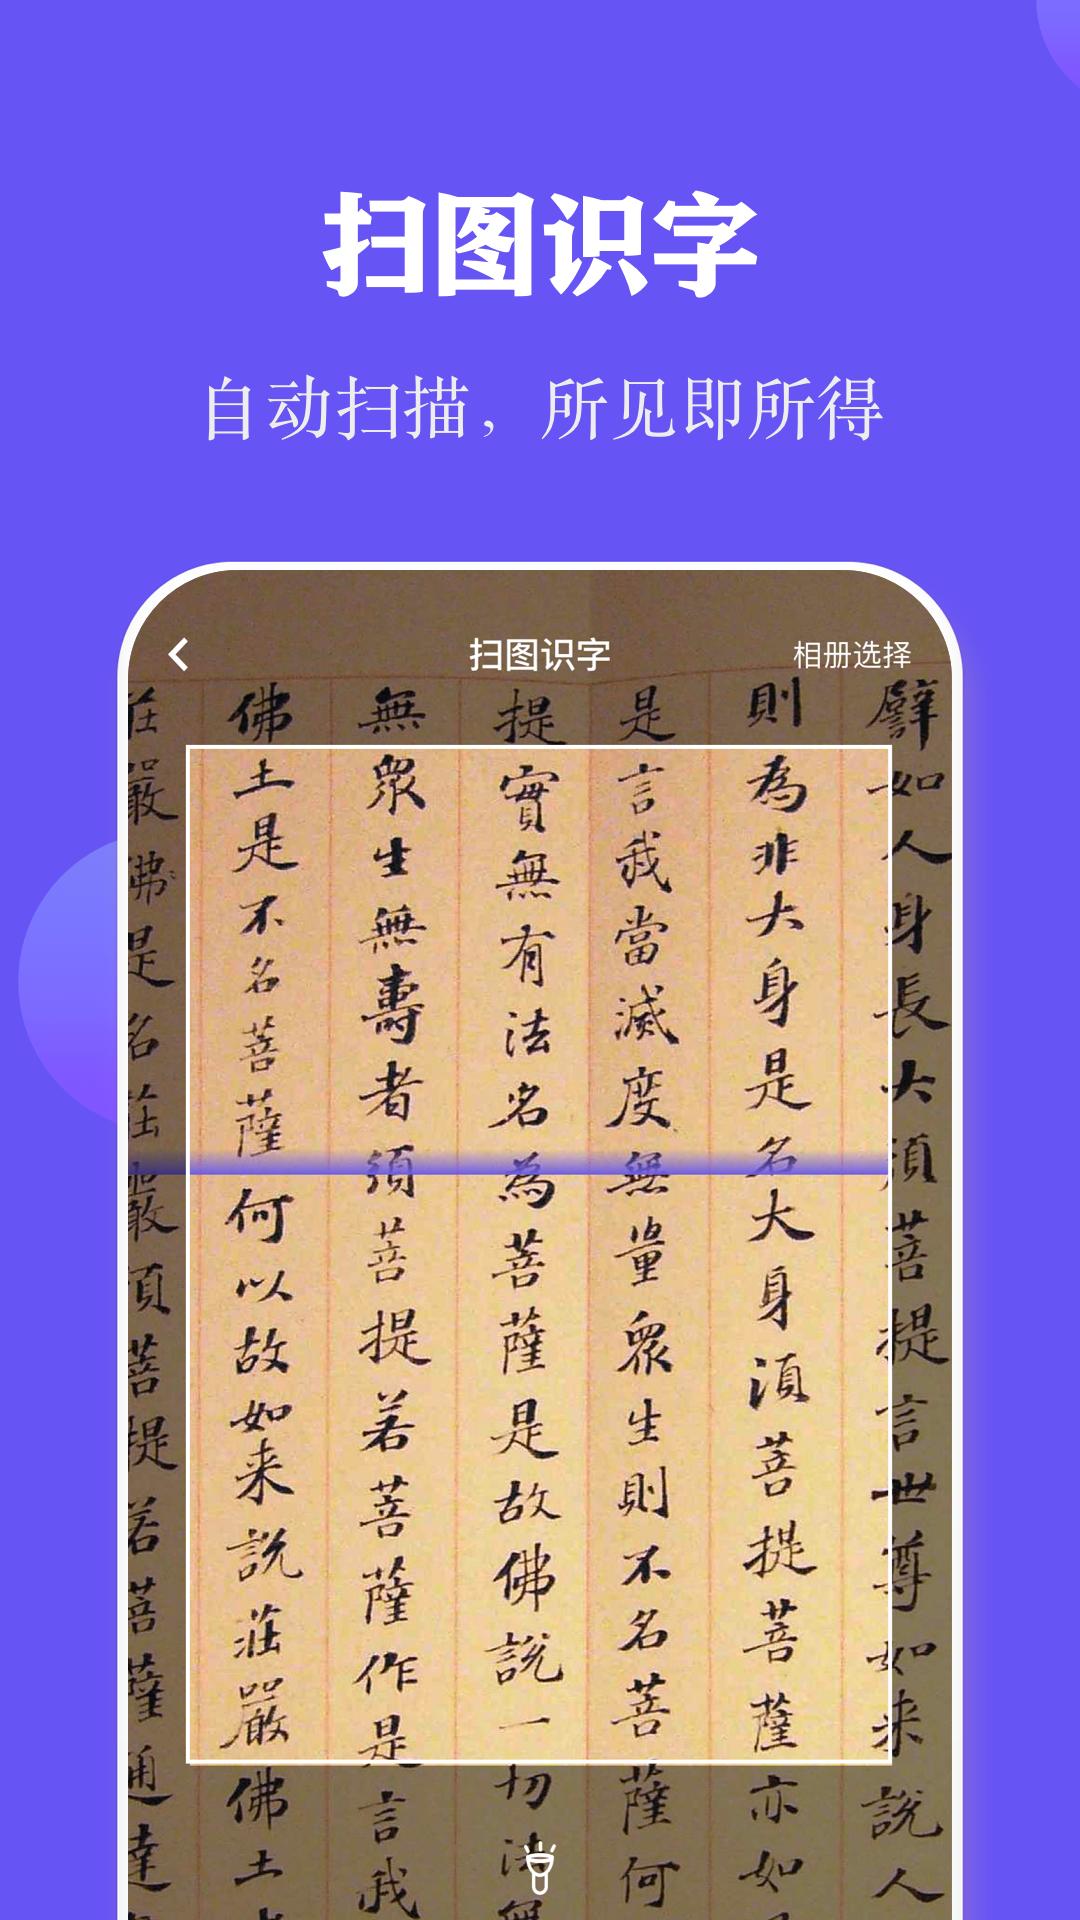 扫图识字
自动扫描，所见即所得
扫图识字
相册选择
譬如人身長大須菩提言世尊如来說人
則為非大身是名大身須菩提菩薩亦如
是言我當滅度無量眾生則不名菩薩何
提實無有法名為菩薩是故佛說一切法無
無眾生無壽者須菩提若菩薩作是言我
佛土是不名菩薩何以故如来說莊嚴佛土
莊嚴佛是名莊嚴須菩提若菩薩通達